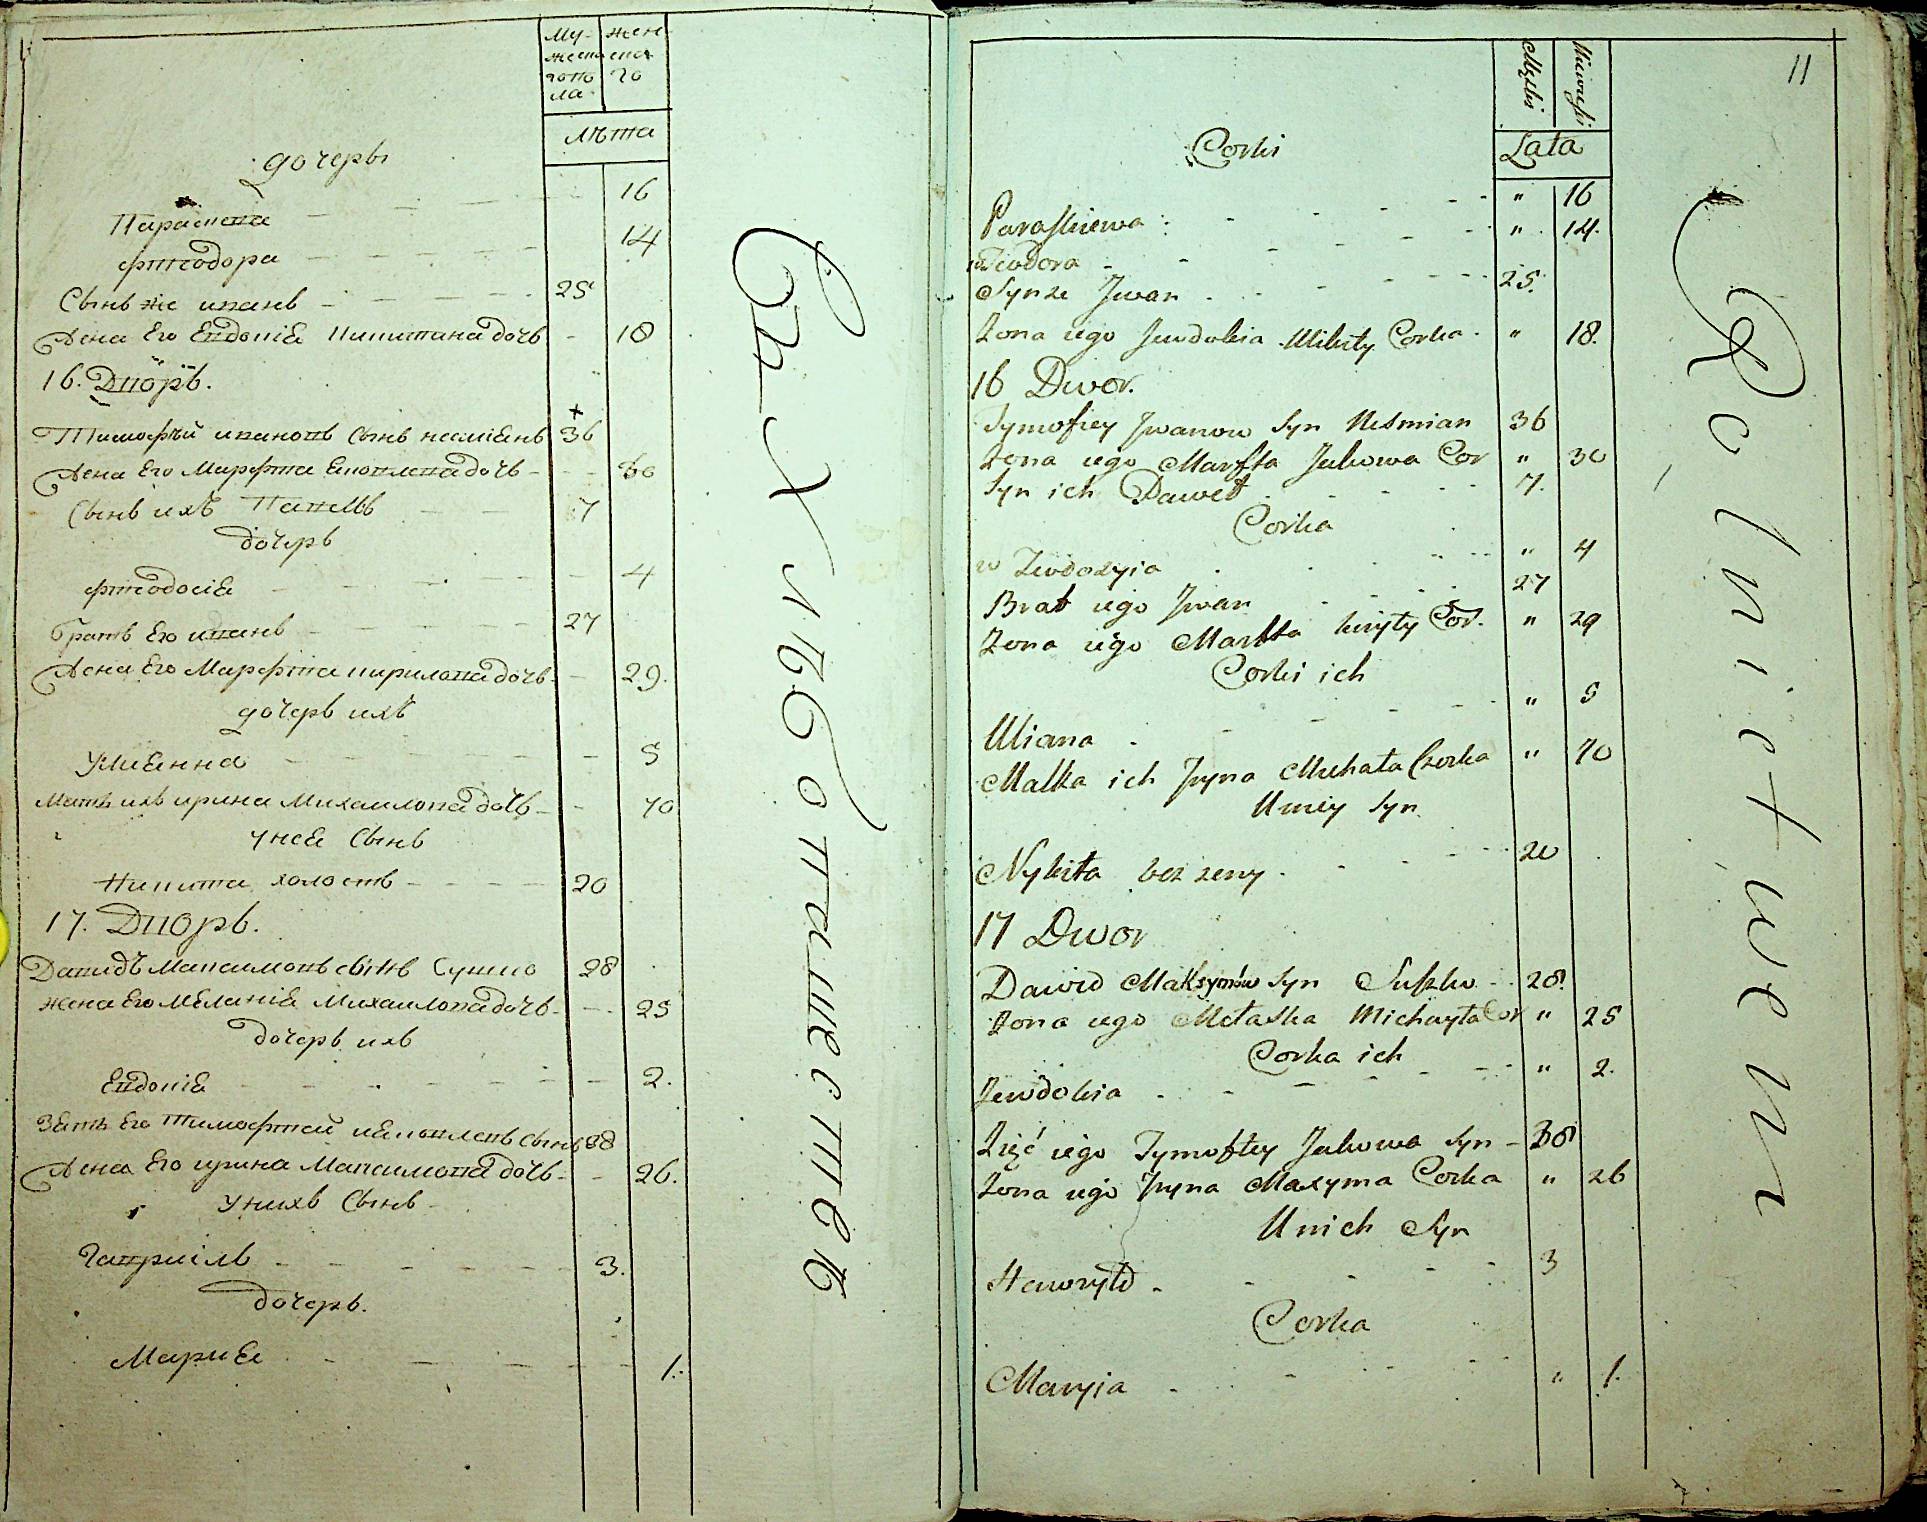 Му-
жеска
го по
ла
жен
ска
го
лѣта
дочеры
Параскева - - - - 16
Фтеодора - - - - 14
Сынъ же иванъ - - - - 25
Жена Его Евдокіѣ Никитина дочь - 18
16. Дворъ.
Тимофѣй ивановъ Сынъ несмѣѣнъ 36
Жена Его Марфта - - 30
Сынъ ихъ Павелъ - - 7
дочерь
Фтеодосіѣ - - - - 4
братъ Его иванъ - - - 27
Жена Его Марфта кирилова дочь - 29.
дочерь ихъ
Улиѣнна - - - - 5
Мать ихъ ирина Михаилова дочь - - 70
у нсе Сынъ
Никита холостъ - - - - 20
17. Дворъ.
Давидъ Максимовъ сынъ Сушко 28
жена Его Меланіѣ Михаилова дочь - - 25
дочерь ихъ
Евдокіѣ - - - - - 2.
Зѣть Его Тимофтей Сынъ 38
Жена Его ирина Максимова дочь - - 26.
у нихъ Сынъ
Гавриілъ - - - - - 3.
дочерь.
Мариѣ - - - - - 1.
Съ Хлѣбопашествѣ
11
Męzki
Niewieski
Lata
Corki
Paraskiewa - - - - " 16
Teodora - - - - " 14.
Synże Jwan - - - - 25.
Zona iego Jewdokia Mikity Corka " 18.
16 Dwor.
Tymofiey Jwanow Syn Nesmian 36
Zona iego Marfta Jakowa Cor " 30
Syn ich Paweł - - - - 7.
Corka
Teodozyia - - - - " 4
Brat iego Jwan - - - - 27
Zona iego Marfta kiryły Cor. " 29
Corki ich
Uliana - - - - " 5
Matka ich Jryna Michała Czorka " 70
U niey Syn
Nykita bez zeny - - - - 20
17 Dwor
Dawid Maksymów Syn Suszko - 28.
Zona iego Małaska Michayła Cor " 25
Corka ich
Jewdokia - - - - " 2.
Zięć iego Tymoftey Jakowa Syn - 38
Zona iego Jryna Maxyma Corka " 26
U nich Syn
Hawryło - - - - 3
Corka
Maryia - - - - " 1.
Rolnictwem